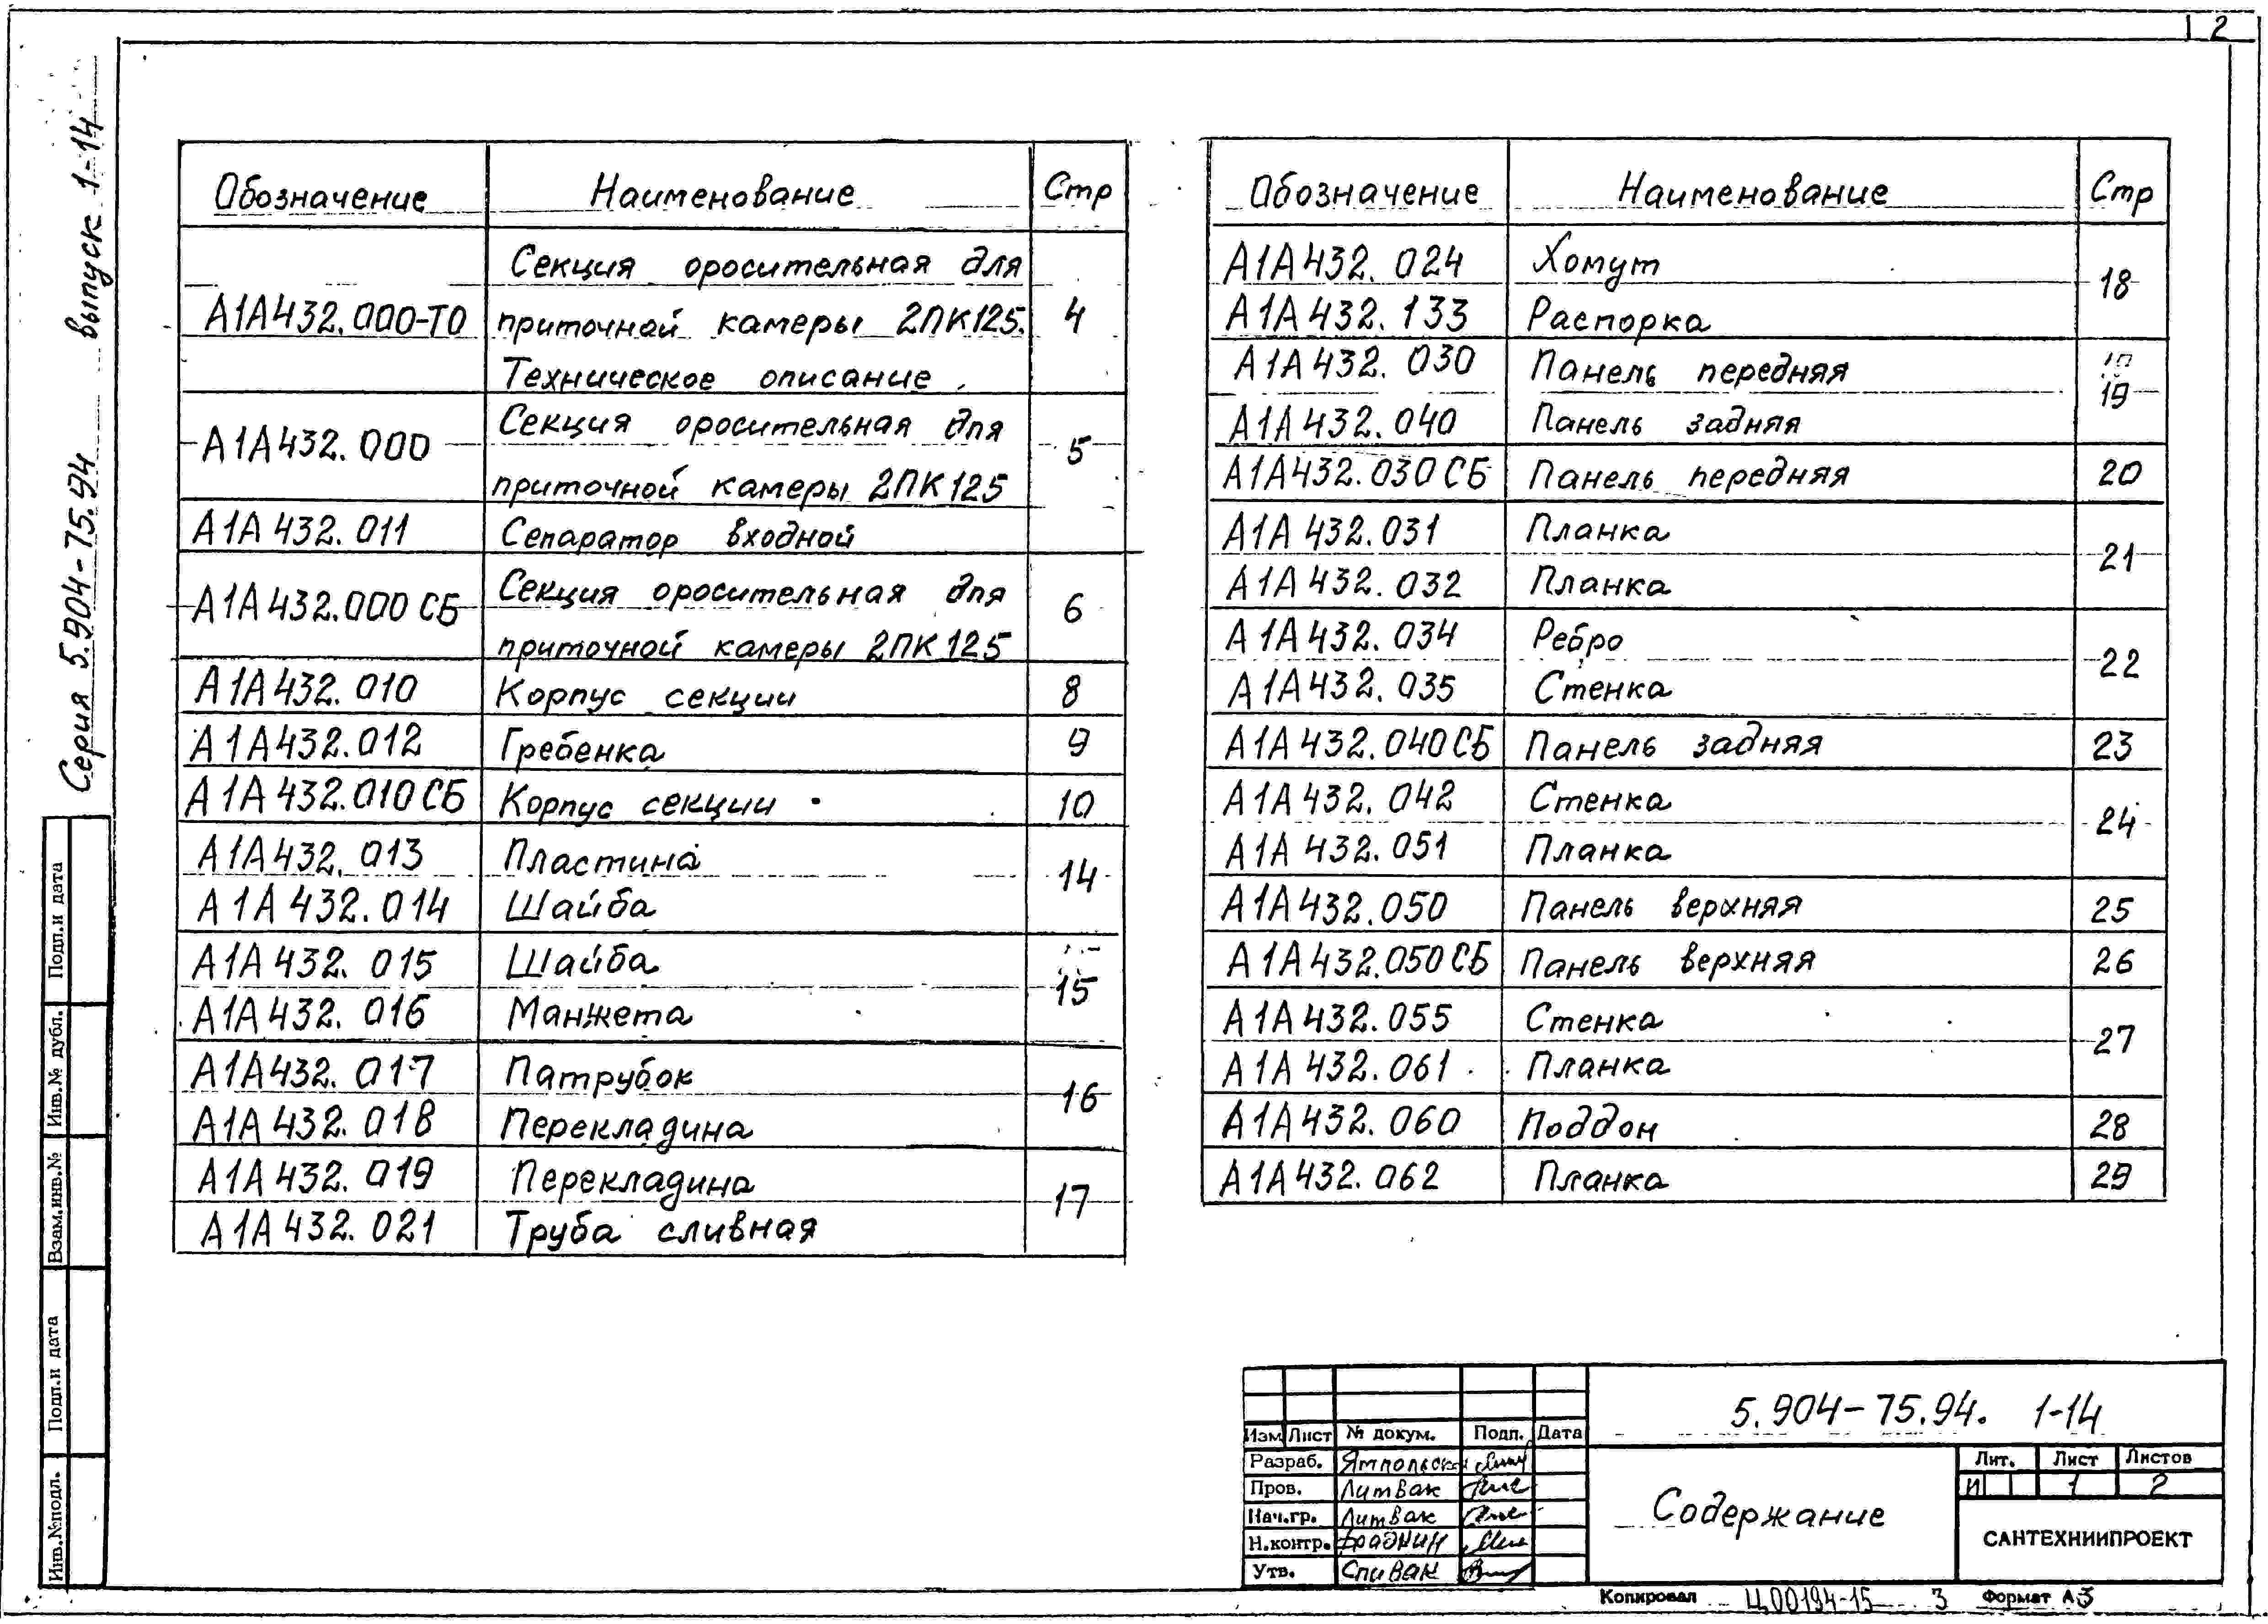 2
Серия 5.904-75.94 выпуск 1-14
Обозначение Наименование Стр
Секция оросительная для
А1А432.000-ТО приточной камеры 2ПК125. 4
Техническое описание
А1А432.000 Секция оросительная для 5
приточной камеры 2ПК125
А1А432.011 Сепаратор входной
А1А432.000 СБ Секция оросительная для 6
приточной камеры 2ПК125
А1А432.010 Корпус секции 8
А1А432.012 Гребенка 9
А1А432.010 СБ Корпус секции 10
А1А432.013 Пластина 14
А1А432.014 Шайба
А1А432.015 Шайба 15
А1А432.016 Манжета
А1А432.017 Патрубок 16
А1А432.018 Перекладина
А1А432.019 Перекладина 17
А1А432.021 Труба сливная
Обозначение Наименование Стр
А1А432.024 Хомут 18
А1А432.133 Распорка
А1А432.030 Панель передняя 19
А1А432.040 Панель задняя
А1А432.030 СБ Панель передняя 20
А1А432.031 Планка 21
А1А432.032 Планка
А1А432.034 Ребро 22
А1А432.035 Стенка
А1А432.040 СБ Панель задняя 23
А1А432.042 Стенка 24
А1А432.051 Планка
А1А432.050 Панель верхняя 25
А1А432.050 СБ Панель верхняя 26
А1А432.055 Стенка 27
А1А432.061 Планка
А1А432.060 Поддон 28
А1А432.062 Планка 29
Подп.и дата
Инв.№ дубл.
Взам.инв.№
Подп.и дата
Инв.№подл.
5.904-75.94. 1-14
Изм Лист № докум. Подп. Дата
Разраб.
Пров. Литвак
Нач.гр. Литвак
Н.контр.
Утв. Спивак
Содержание
Лит. Лист Листов
И 1 2
САНТЕХНИИПРОЕКТ
Копировал Ц00194-15 3 Формат А3